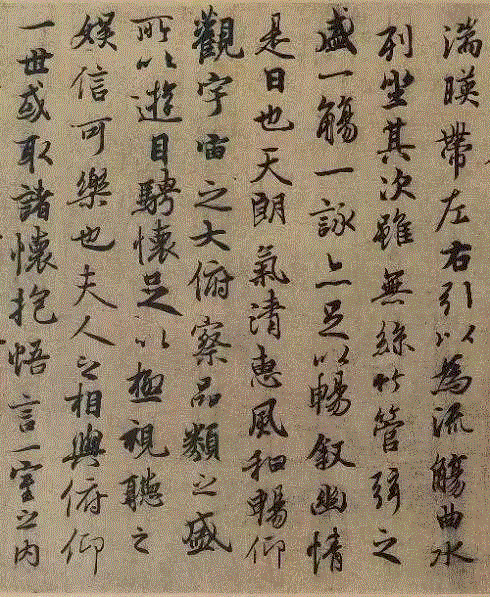 湍暎帶左右引以為流觴曲水
列坐其次雖無絲竹管弦之
盛一觴一詠亦足以暢叙幽情
是日也天朗氣清惠風和暢仰
觀宇宙之大俯察品類之盛
所以遊目騁懷足以極視聽之
娛信可樂也夫人之相與俯仰
一世或取諸懷抱悟言一室之內